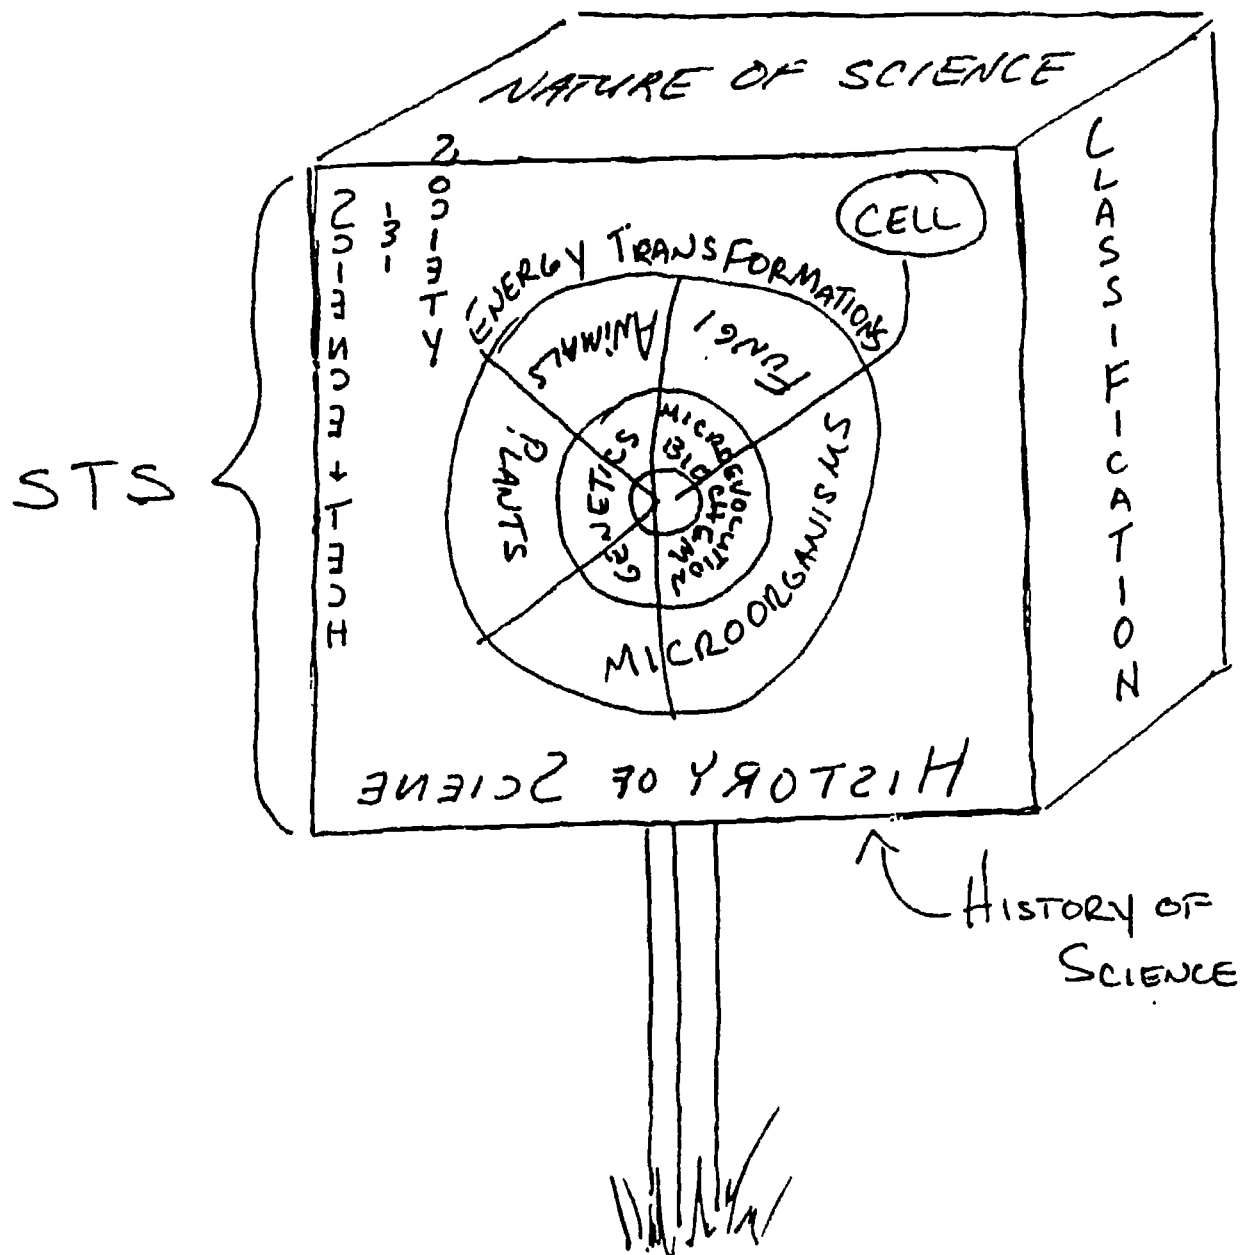 NATURE OF SCIENCE
CLASSIFICATION
STS
SCIENCE + TECH
SOCIETY
CELL
ENERGY TRANSFORMATIONS
ANIMALS
FUNGI
PLANTS
MICROORGANISMS
GENETICS
MICROEVOLUTION
BIOCHEM
HISTORY OF SCIENE
HISTORY OF
SCIENCE